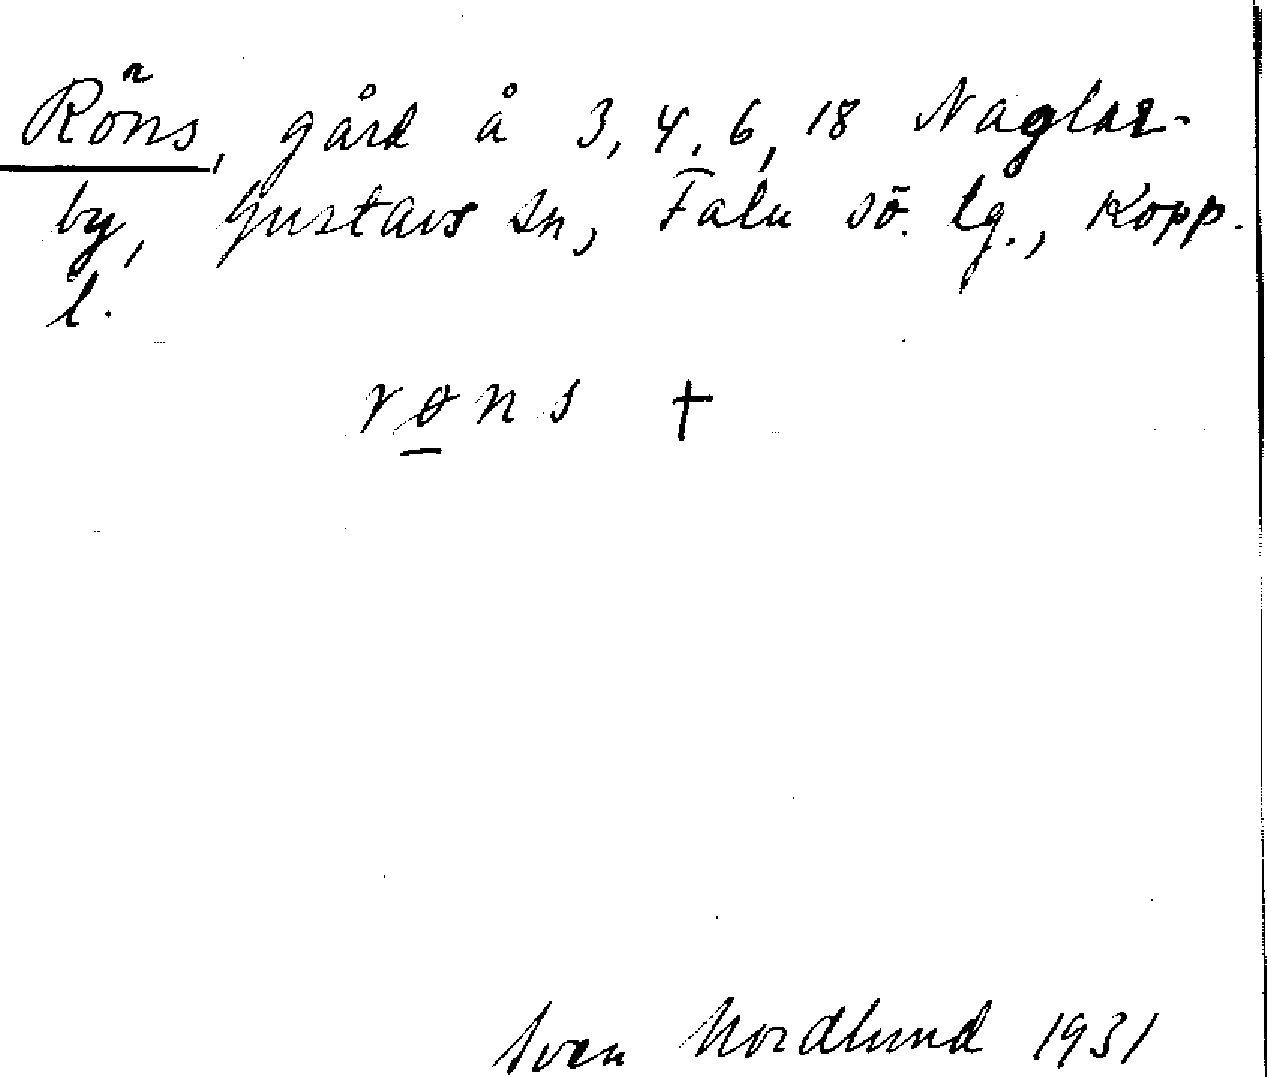 Röns, gård å 3, 4, 6, 18 Naglar-
by, Gustavs sn, Falu sö. lg., Kopp.
l.
røns +
Sven Nordlund 1931